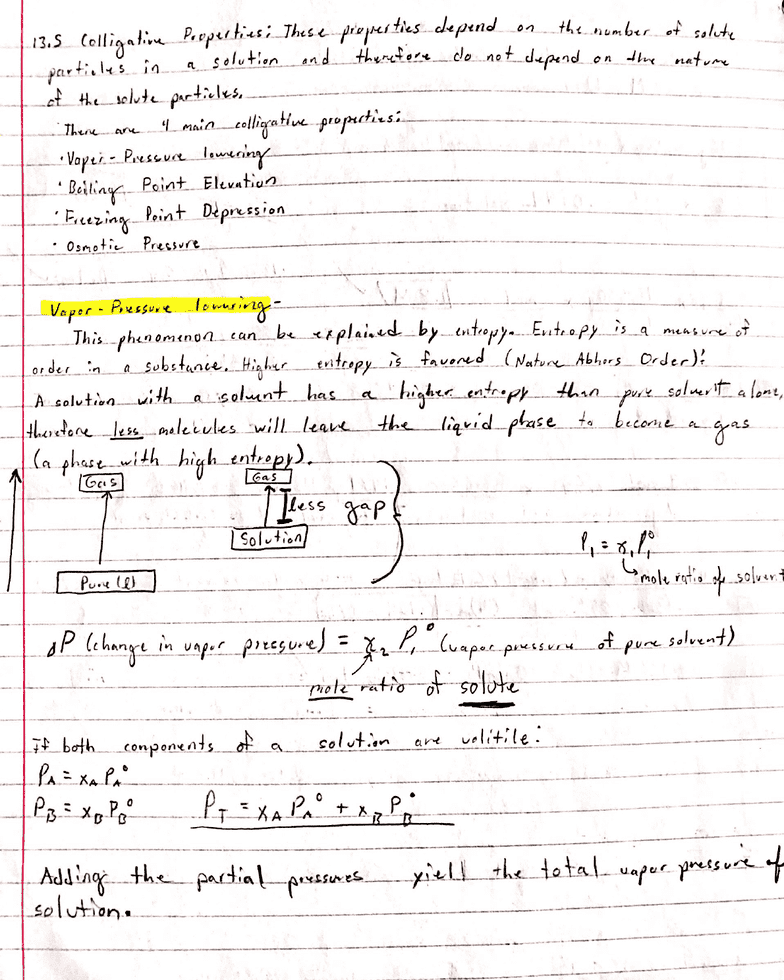 13.5 Colligative Properties: These properties depend on the number of solute
particles in a solution and therefore do not depend on the nature
of the solute particles.
There are 4 main colligative properties:
· Vapor-Pressure lowering
· Boiling Point Elevation
· Freezing Point Depression
· Osmotic Pressure
Vapor-Pressure lowering-
This phenomenon can be explained by entropy. Entropy is a measure of
order in a substance. Higher entropy is favored (Nature Abhors Order)!
A solution with a solvent has a higher entropy than pure solvent alone,
therefore less molecules will leave the liquid phase to become a gas
(a phase with high entropy).
Gas
Gas
less gap
Solution
Pure (l)
P₁ = x₁P₁°
mole ratio of solvent
ΔP (change in vapor pressure) = x₂ P₁° (vapor pressure of pure solvent)
mole ratio of solute
If both components of a solution are volitile:
P_A = x_A P_A°
P_B = x_B P_B° P_T = x_A P_A° + x_B P_B°
Adding the partial pressures yiell the total vapor pressure of
solution.